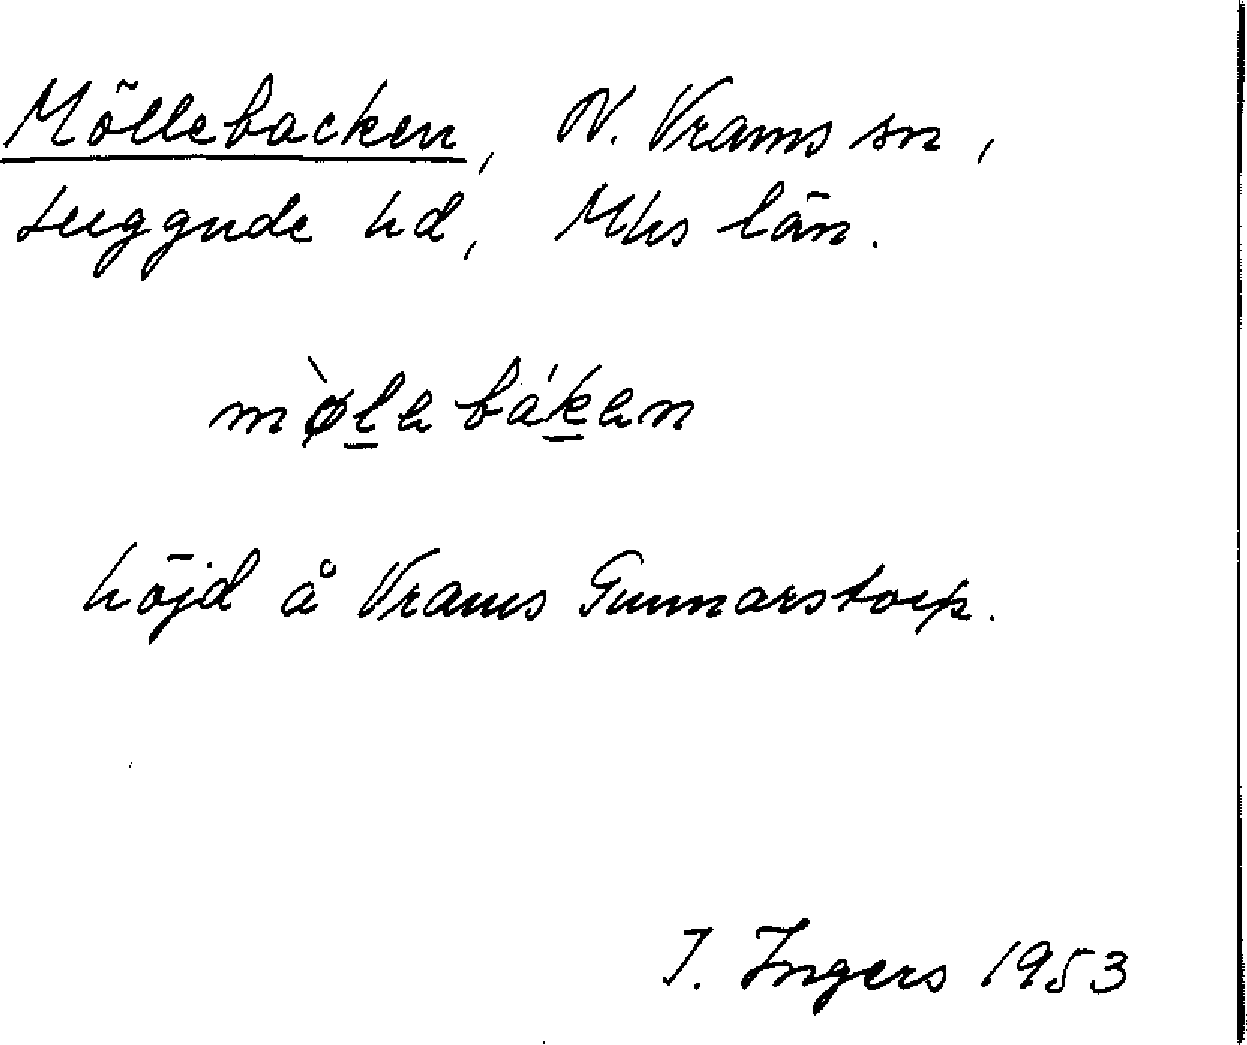 Möllebacken, N. Vrams sn,
Luggude hd, Mhs län.
mø̀l̲e bák̲en
höjd å Vrams Gunnarstorp.
I. Ingers 1953